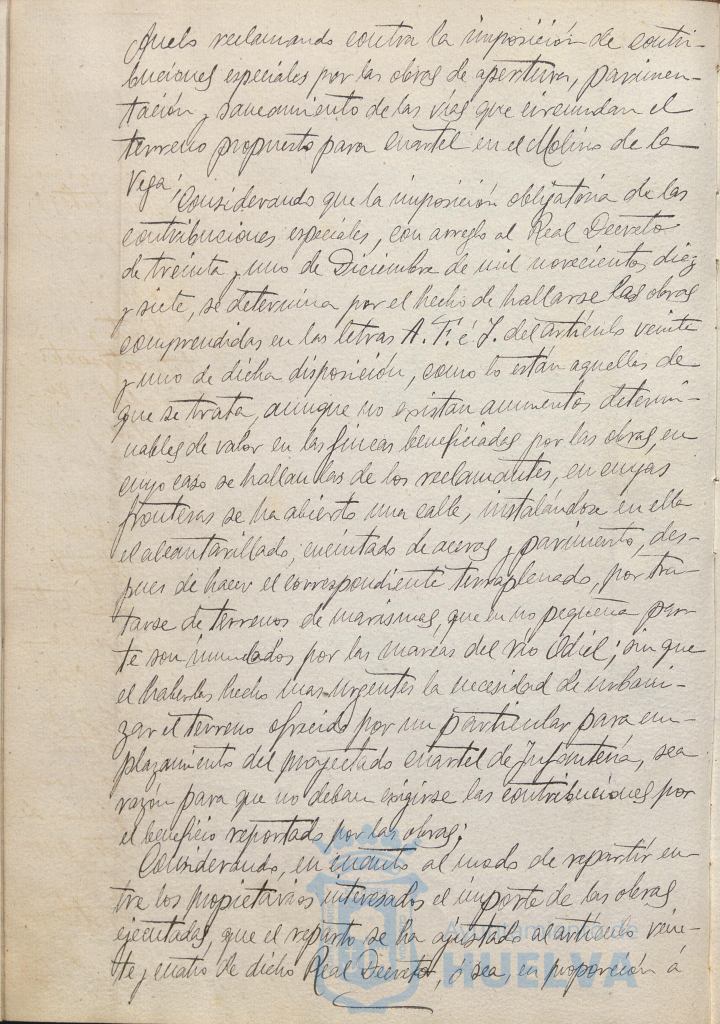 reclamando contra la imposición de contri-
buciones especiales por las obras de apertura, pavimen-
tación y saneamiento de las vías que circundan el
terreno propuesto para cuartel en el Molino de la
Vega;
Considerando que la imposición obligatoria de las
contribuciones especiales, con arreglo al Real Decreto
de treinta y uno de Diciembre de mil novecientos diez
y siete, se determina por el hecho de hallarse las obras
comprendidas en las letras A. F. é J. del artículo veinte
y uno de dicha disposición, como lo están aquellas de
que se trata, aunque no existan aumentos determi-
nables de valor en las fincas beneficiadas por las obras, en
cuyo caso se hallan las de los reclamantes, en cuyas
fronteras se ha abierto una calle, instalándose en ella
el alcantarillado, encintado de aceras y pavimento, des-
pues de hacer el correspondiente terraplenado, por tra-
tarse de terrenos de marismas, que en no pequeña par-
te son inundados por las mareas del río Odiel; sin que
el haberlas hecho mas urgentes la necesidad de urbani-
zar el terreno ofrecido por un particular para em-
plazamiento del proyectado cuartel de Infantería, sea
razón para que no deban exigirse las contribuciones por
el beneficio reportado por las obras;
Considerando, en cuanto al modo de repartir en-
tre los propietarios interesados el importe de las obras
ejecutadas, que el reparto se ha ajustado al artículo vein-
te y cuatro de dicho Real Decreto, ó sea, en proporción á
Ayuntamiento de
HUELVA